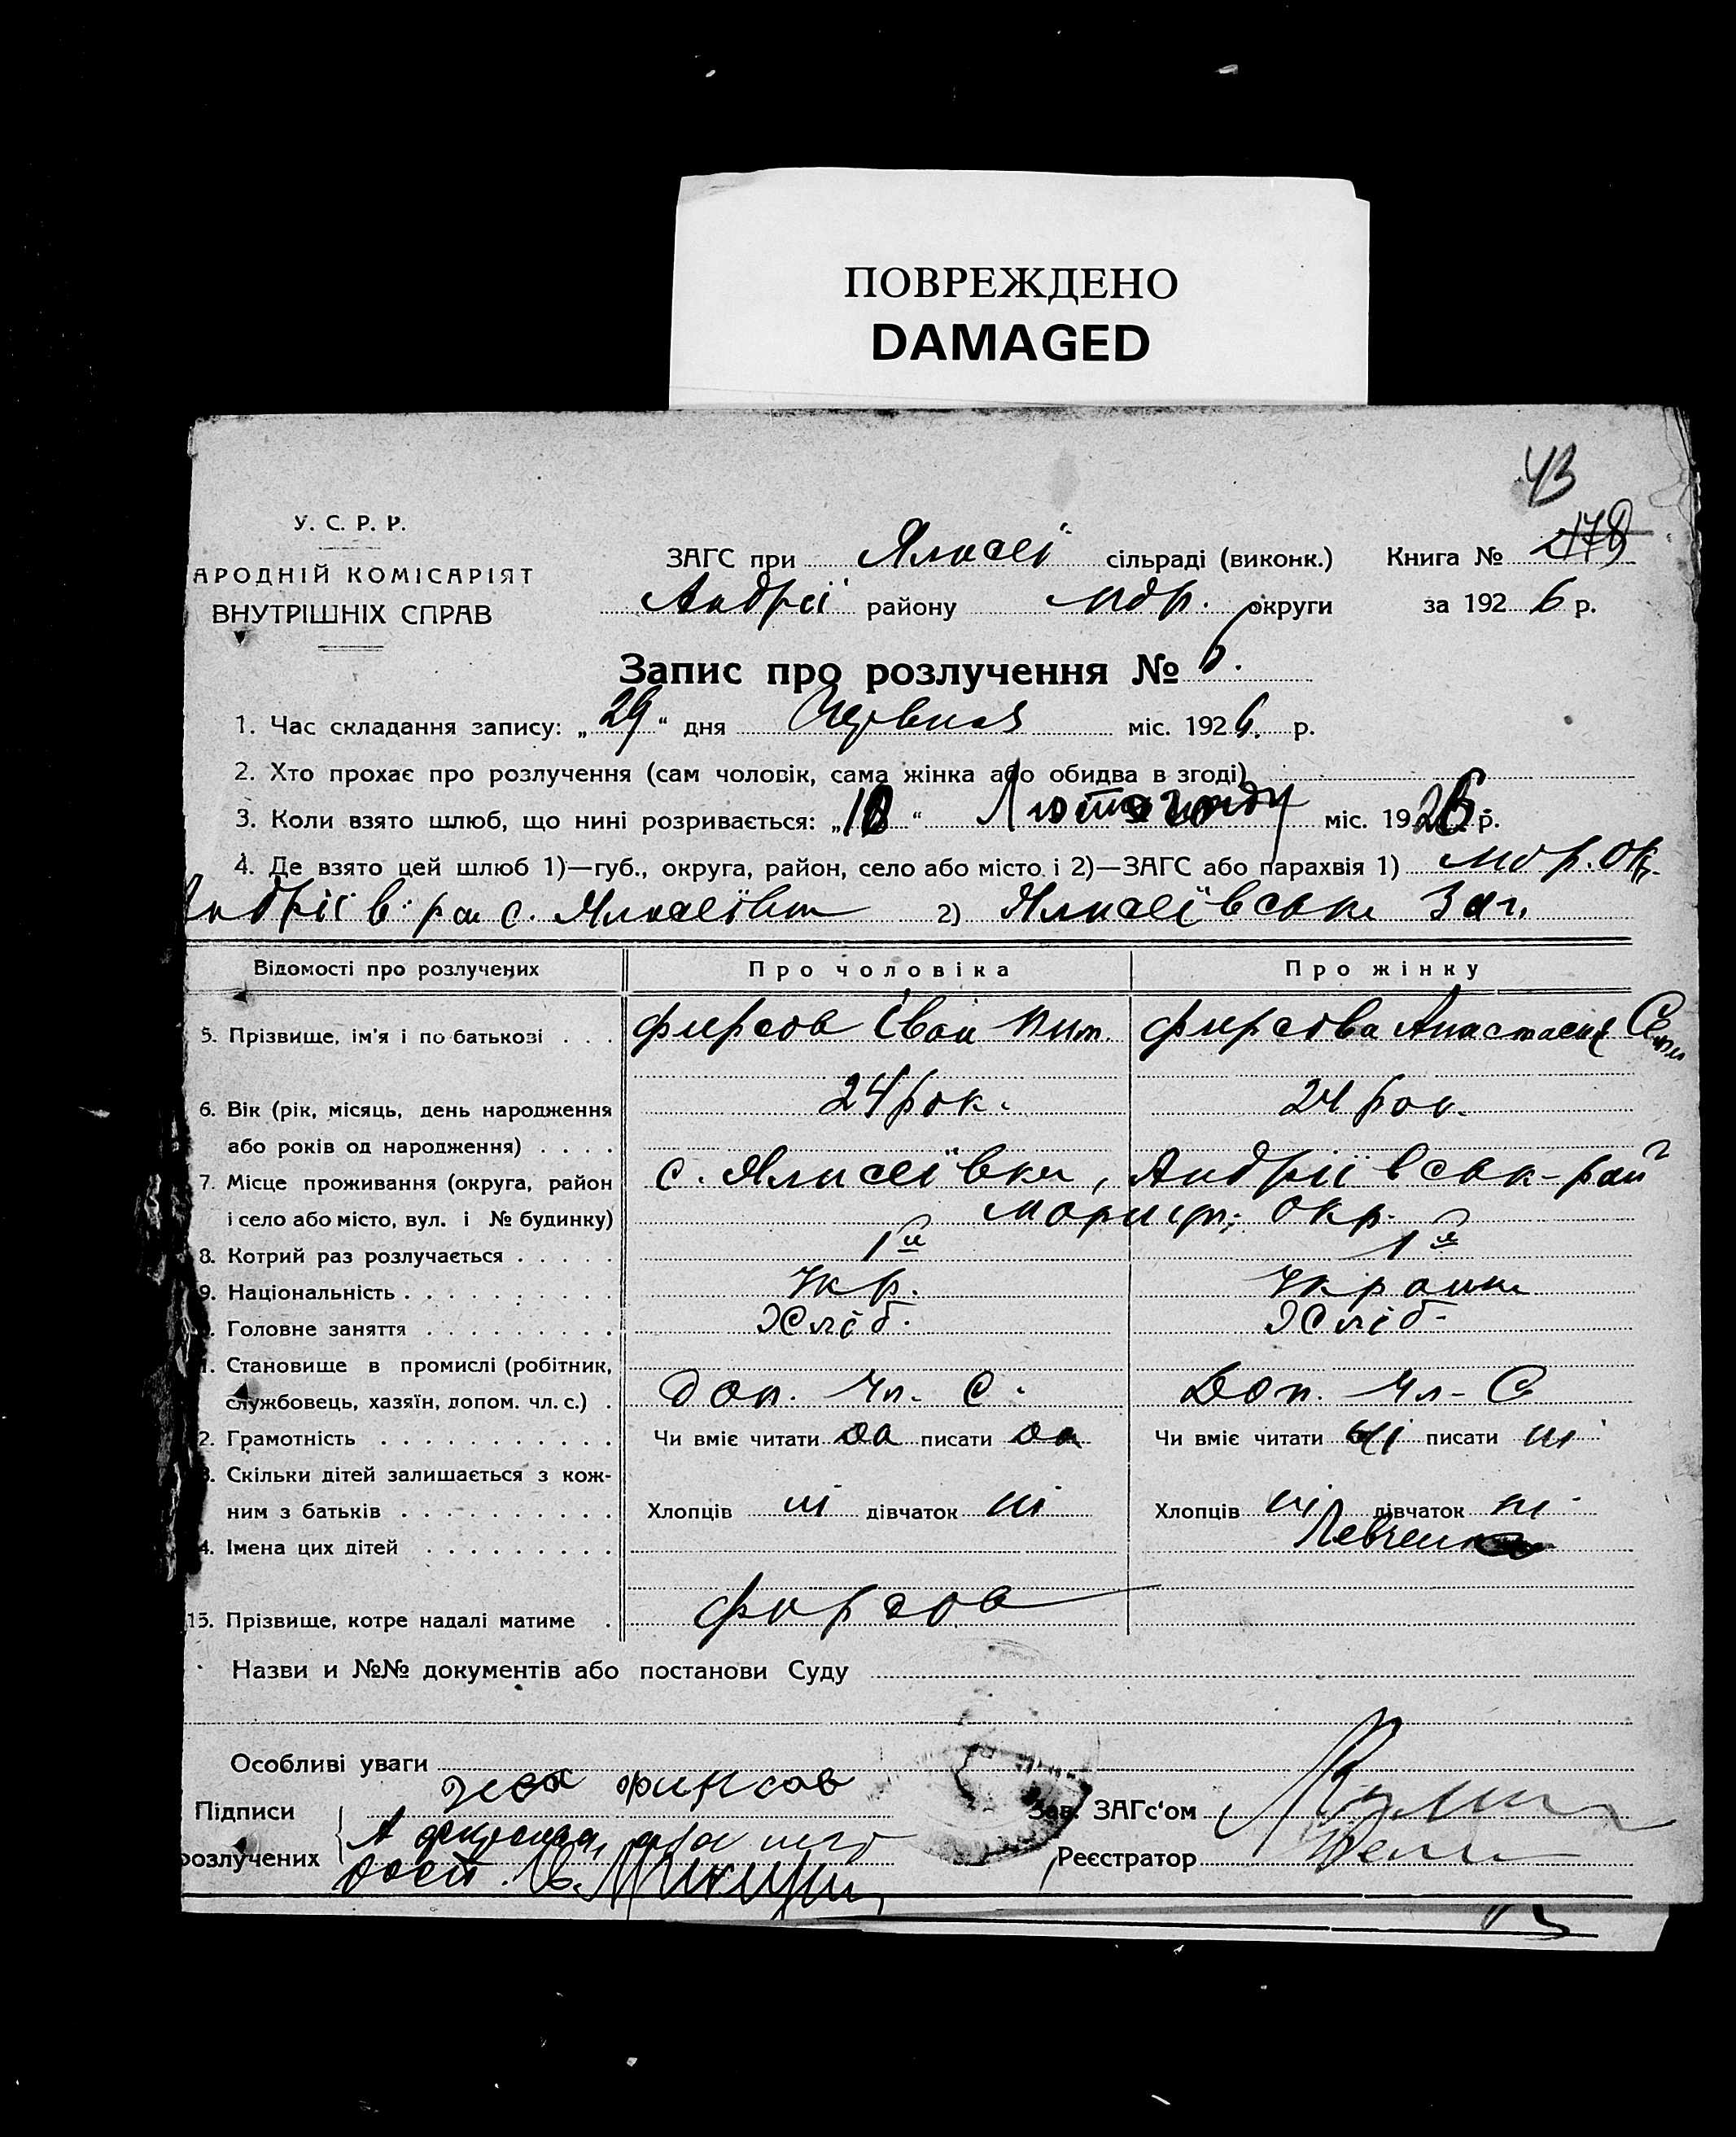 ПОВРЕЖДЕНО
DAMAGED
43
У. С. Р. Р.
АРОДНІЙ КОМІСАРІЯТ
ВНУТРІШНІХ СПРАВ
ЗАГС при Ялисеї сільраді (виконк.) Книга № 278
Андрії району Мдр. округи за 1926 р.
Запис про розлучення № 6.
1. Час складання запису: „29“ дня Червня міс. 1926. р.
2. Хто прохає про розлучення (сам чоловік, сама жінка або обидва в згоді)
3. Коли взято шлюб, що нині розривається: „18“ Лютого міс. 1926 р.
4. Де взято цей шлюб 1)—губ., округа, район, село або місто і 2)—ЗАГС або парахвія 1) Мор. Ок.
Андрїів. ра с. Ялисеївка 2) Ялисеївськи Заг.
Відомості про розлучених Про чоловіка Про жінку
5. Прізвище, ім'я і по батькові . . . Фирсов Іван Пит. Фирсова Анастасия Сем
6. Вік (рік, місяць, день народження 24 рок. 24 рок.
або років од народження) . . . .
7. Місце проживання (округа, район с. Ялисеївка, Андріївськ-рай
і село або місто, вул. і № будинку) Мариуп. Окр.
8. Котрий раз розлучається . . . . . 1й 1я
9. Національність . . . . . . . . . . Укр. Украинк
. Головне заняття . . . . . . . . . Хліб. Хліб-
1. Становище в промислі (робітник,
службовець, хазяїн, допом. чл. с.) . Доп. Чл. С. Доп. Чл-С
2. Грамотність . . . . . . . . . . . Чи вміє читати да писати да Чи вміє читати ні писати ні
3. Скільки дітей залишається з кож-
ним з батьків . . . . . . . . . . Хлопців ні дівчаток ні Хлопців ні дівчаток ні
4. Імена цих дітей . . . . . . . . . Левченко
15. Прізвище, котре надалі матиме . Фирсов
Назви и №№ документів або постанови Суду
Особливі уваги
Підписи фирсов Зав. ЗАГс'ом
розлучених Реєстратор